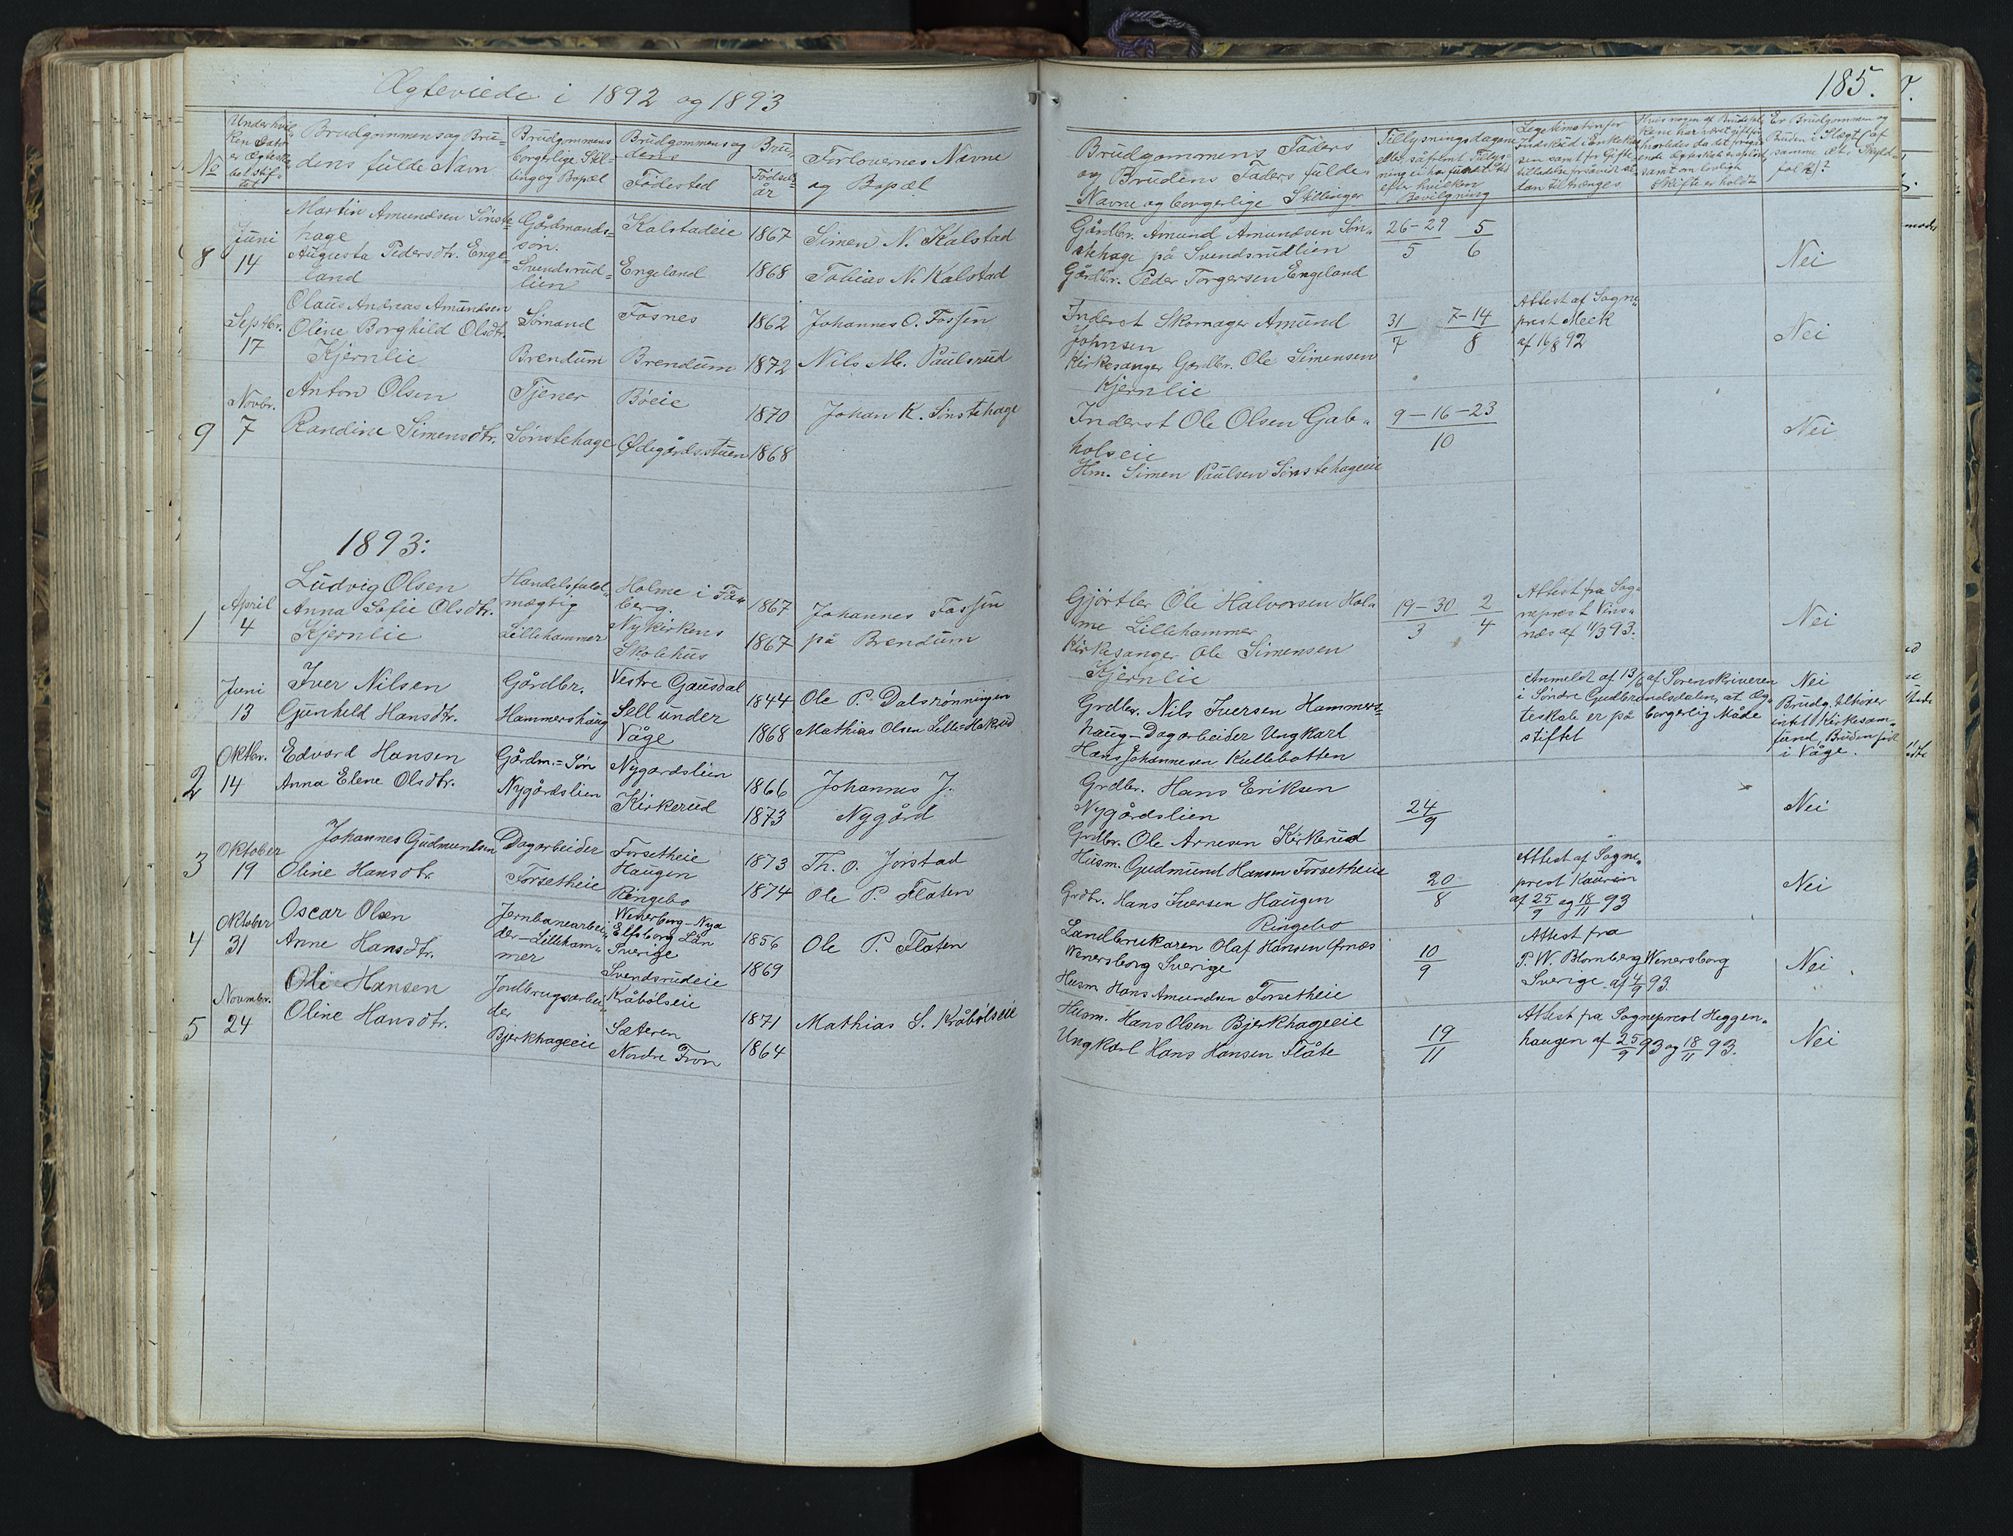 Ægteviede i 1892 og 1893
185.
No
Under hvil-
ken Dato
er Ægteska-
bet stif-
tet
Brudgommens og Bru-
dens fulde Navn
Brudgommens
borgelige Stil-
ling og Bopæl
Brudgommens og Bru-
dens
Fødested
Fødsels-
år
Forlovernes Navne
og Bopæl
Brudgommens Faders
og Brudens Faders fulde
Navne og borgerlige Stillinger
Tillysningsdagene
eller, såfremt Tillys-
ning ei har fundet Sted
efter hvilken
Bevilgning
Skifte er holdt
8
Juni
14
Martin Amundsen Sønste-
hage
Augusta Pedersdtr. Enge-
land
Gårdmands-
søn.
Svendsrud-
lien
Kalstadeie 1867
Engeland 1868
Simen N. Kalstad
Tobias N. Kalstad
Gårdbr. Amund Amundsen Søn-
stehage på Svendsrudlien
Gårdbr. Peder Torgersen Engeland
26-29 5
5 6
Nei
Septbr.
17
Olaus Andreas Amundsen
Oline Borghild Olsdtr.
Kjernlie
Sønand
Brendum
Fosnes 1862
Brendum 1872
Johannes O. Fossen
Nils M. Paulsrud
Inderst Skomager Amund
Johnsen
Kirkesanger Gardbr. Ole Simensen
Kjernlie
31 7-14
7 8
Attest af Sogne-
prest Meek
af 16/8 92
Nei
9
Novbr.
7
Anton Olsen
Randine Simensdtr.
Tjener
Sønstehage
Bøeie 1870
Ødegårdsstuen 1868
Johan K. Sønstehage
Inderst Ole Olsen Gab-
holseie
Hm. Simen Paulsen Sønstehageeie
9-16-23
10
Nei
1893:
1
April
4
Ludvig Olsen
Anna Sofie Olsdtr.
Kjernlie
Handelsfuld-
mægtig
Lillehammer
Holme i Få-
berg. 1867
Nykirkens
Skolehus 1867
Johannes Fossen
på Brendum
Gjørtler Ole Halvorsen Hol-
me Lillehammer
Kirkesanger Ole Simensen
Kjernlie
19-30 2
3 4
Attest fra Sog-
neprest Vins-
næs af 11/3 93.
Nei
Juni
13
Iver Nilsen
Gunhild Hansdtr.
Gårdbr.
Hammershaug
Vestre Gausdal 1844
Sell under
Våge 1868
Ole P. Dalsrønningen
Mathias Olsen Lille-Hakrud
Grdbr. Nils Iversen Hammers-
haug - Dagarbeider Ungkarl
Hans Johannesen Kullebotten
Anmeldt af 13/6 af Sorenskriveren
i Søndre Gudbrandsdalen, at Æg-
teskab er på borgerlig Måde
stiftet
Nei
Brudg. tilhører
intet Kirkesam-
fund, Bruden født
i Våge.
2
Oktbr.
14
Edvard Hansen
Anna Elene Olsdtr.
Gårdm.-Søn
Nygårdslien
Nygardslien 1866
Kirkerud 1873
Johannes J.
Nygård
Grdbr. Hans Eriksen
Nygårdslien
Grdbr. Ole Arnesen Kirkerud
24
9
Nei
3
Oktober
19
Johannes Gudmundsen
Oline Hansdtr.
Dagarbeider
Forsetheie
Forsetheie 1873
Haugen
Ringebo 1874
Th. O. Jørstad
Ole P. Flaten
Husm. Gudmund Hansen Forsetheie
Grdbr. Hans Iversen Haugen
Ringebo
20
8
Attest af Sogne-
prest Kaurin
af 25/9 og 18/11 93
Nei
4
Oktober
31
Oscar Olsen
Anne Hansdtr.
Jernbanearbei-
der-Lilleham-
mer
Wenersborg-Nya
Elfsborg Län
Sverige 1856
Svendsrudeie 1869
Ole P. Flaten
Landbrukaren Olaf Hansen Ørnæs
Wenersborg Sverige
Husm Hans Amundsen Forsetheie
10
9
Attest fra
P. W. Blomberg Wenersborg
Sverige af 4/9 93.
Nei
5
Novembr.
24
Ole Hansen
Oline Hansdtr.
Jordbrugsarbei-
der
Bjerkhageeie
Kråbølseie
1871
Sæteren
Nordre Fron 1864
Mathias S. Kråbølseie
Husm. Hans Olsen Bjerkhageeie
Ungkarl Hans Hansen Flåte
19
11
Attest fra Sogneprest Heggen-
haugen af 25/9 93 og 18/11 93.
Nei